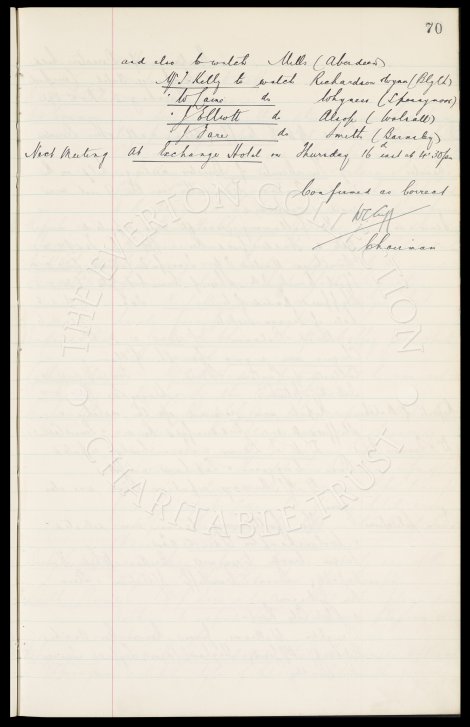 70
and also to watch Mills (Aberdeen)
Mr J Kelly to watch Richardson & (Blyth)
" W do Whyness (Spennymoor)
" J Elliott do Alsop (Walsall)
" J Fare do Smith (Barnsley)
Next Meeting At Exchange Hotel on Thursday 16th inst at 4.30pm
Confirmed as Correct
W C Cuff
Chairman
THE EVERTON COLLECTION
CHARITABLE TRUST